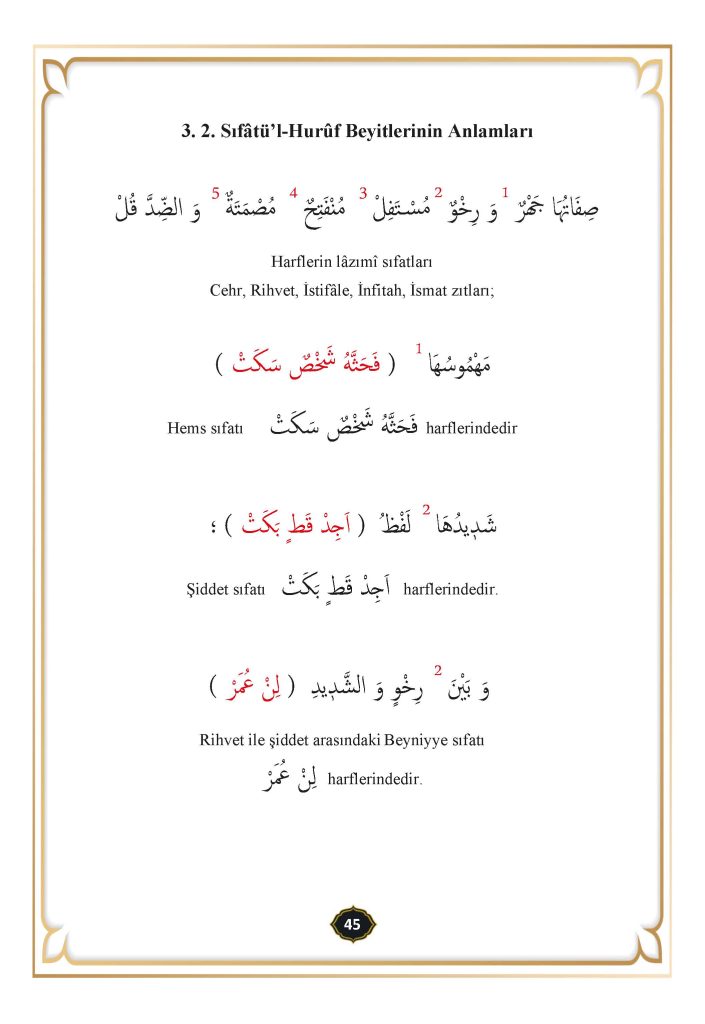 3. 2. Sıfâtü’l-Hurûf Beyitlerinin Anlamları
صِفَاتُهَا جَهْرٌ 1 وَ رِخْوٌ 2 مُسْتَفِلْ 3 مُنْفَتِحٌ 4 مُصْمَتَةٌ 5 وَ الضِّدَّ قُلْ
Harflerin lâzımî sıfatları
Cehr, Rihvet, İstifâle, İnfitah, İsmat zıtları;
مَهْمُوسُهَا 1 ( فَحَثَّهُ شَخْصٌ سَكَتْ )
Hems sıfatı فَحَثَّهُ شَخْصٌ سَكَتْ harflerindedir
شَدٖيدُهَا 2 لَفْظُ ( اَجِدْ قَطٍ بَكَتْ ) ؛
Şiddet sıfatı اَجِدْ قَطٍ بَكَتْ harflerindedir.
وَ بَيْنَ 2 رِخْوٍ وَ الشَّدٖيدِ ( لِنْ عُمَرْ )
Rihvet ile şiddet arasındaki Beyniyye sıfatı
لِنْ عُمَرْ harflerindedir.
45